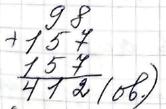 98
+157
157
412 (ов.)